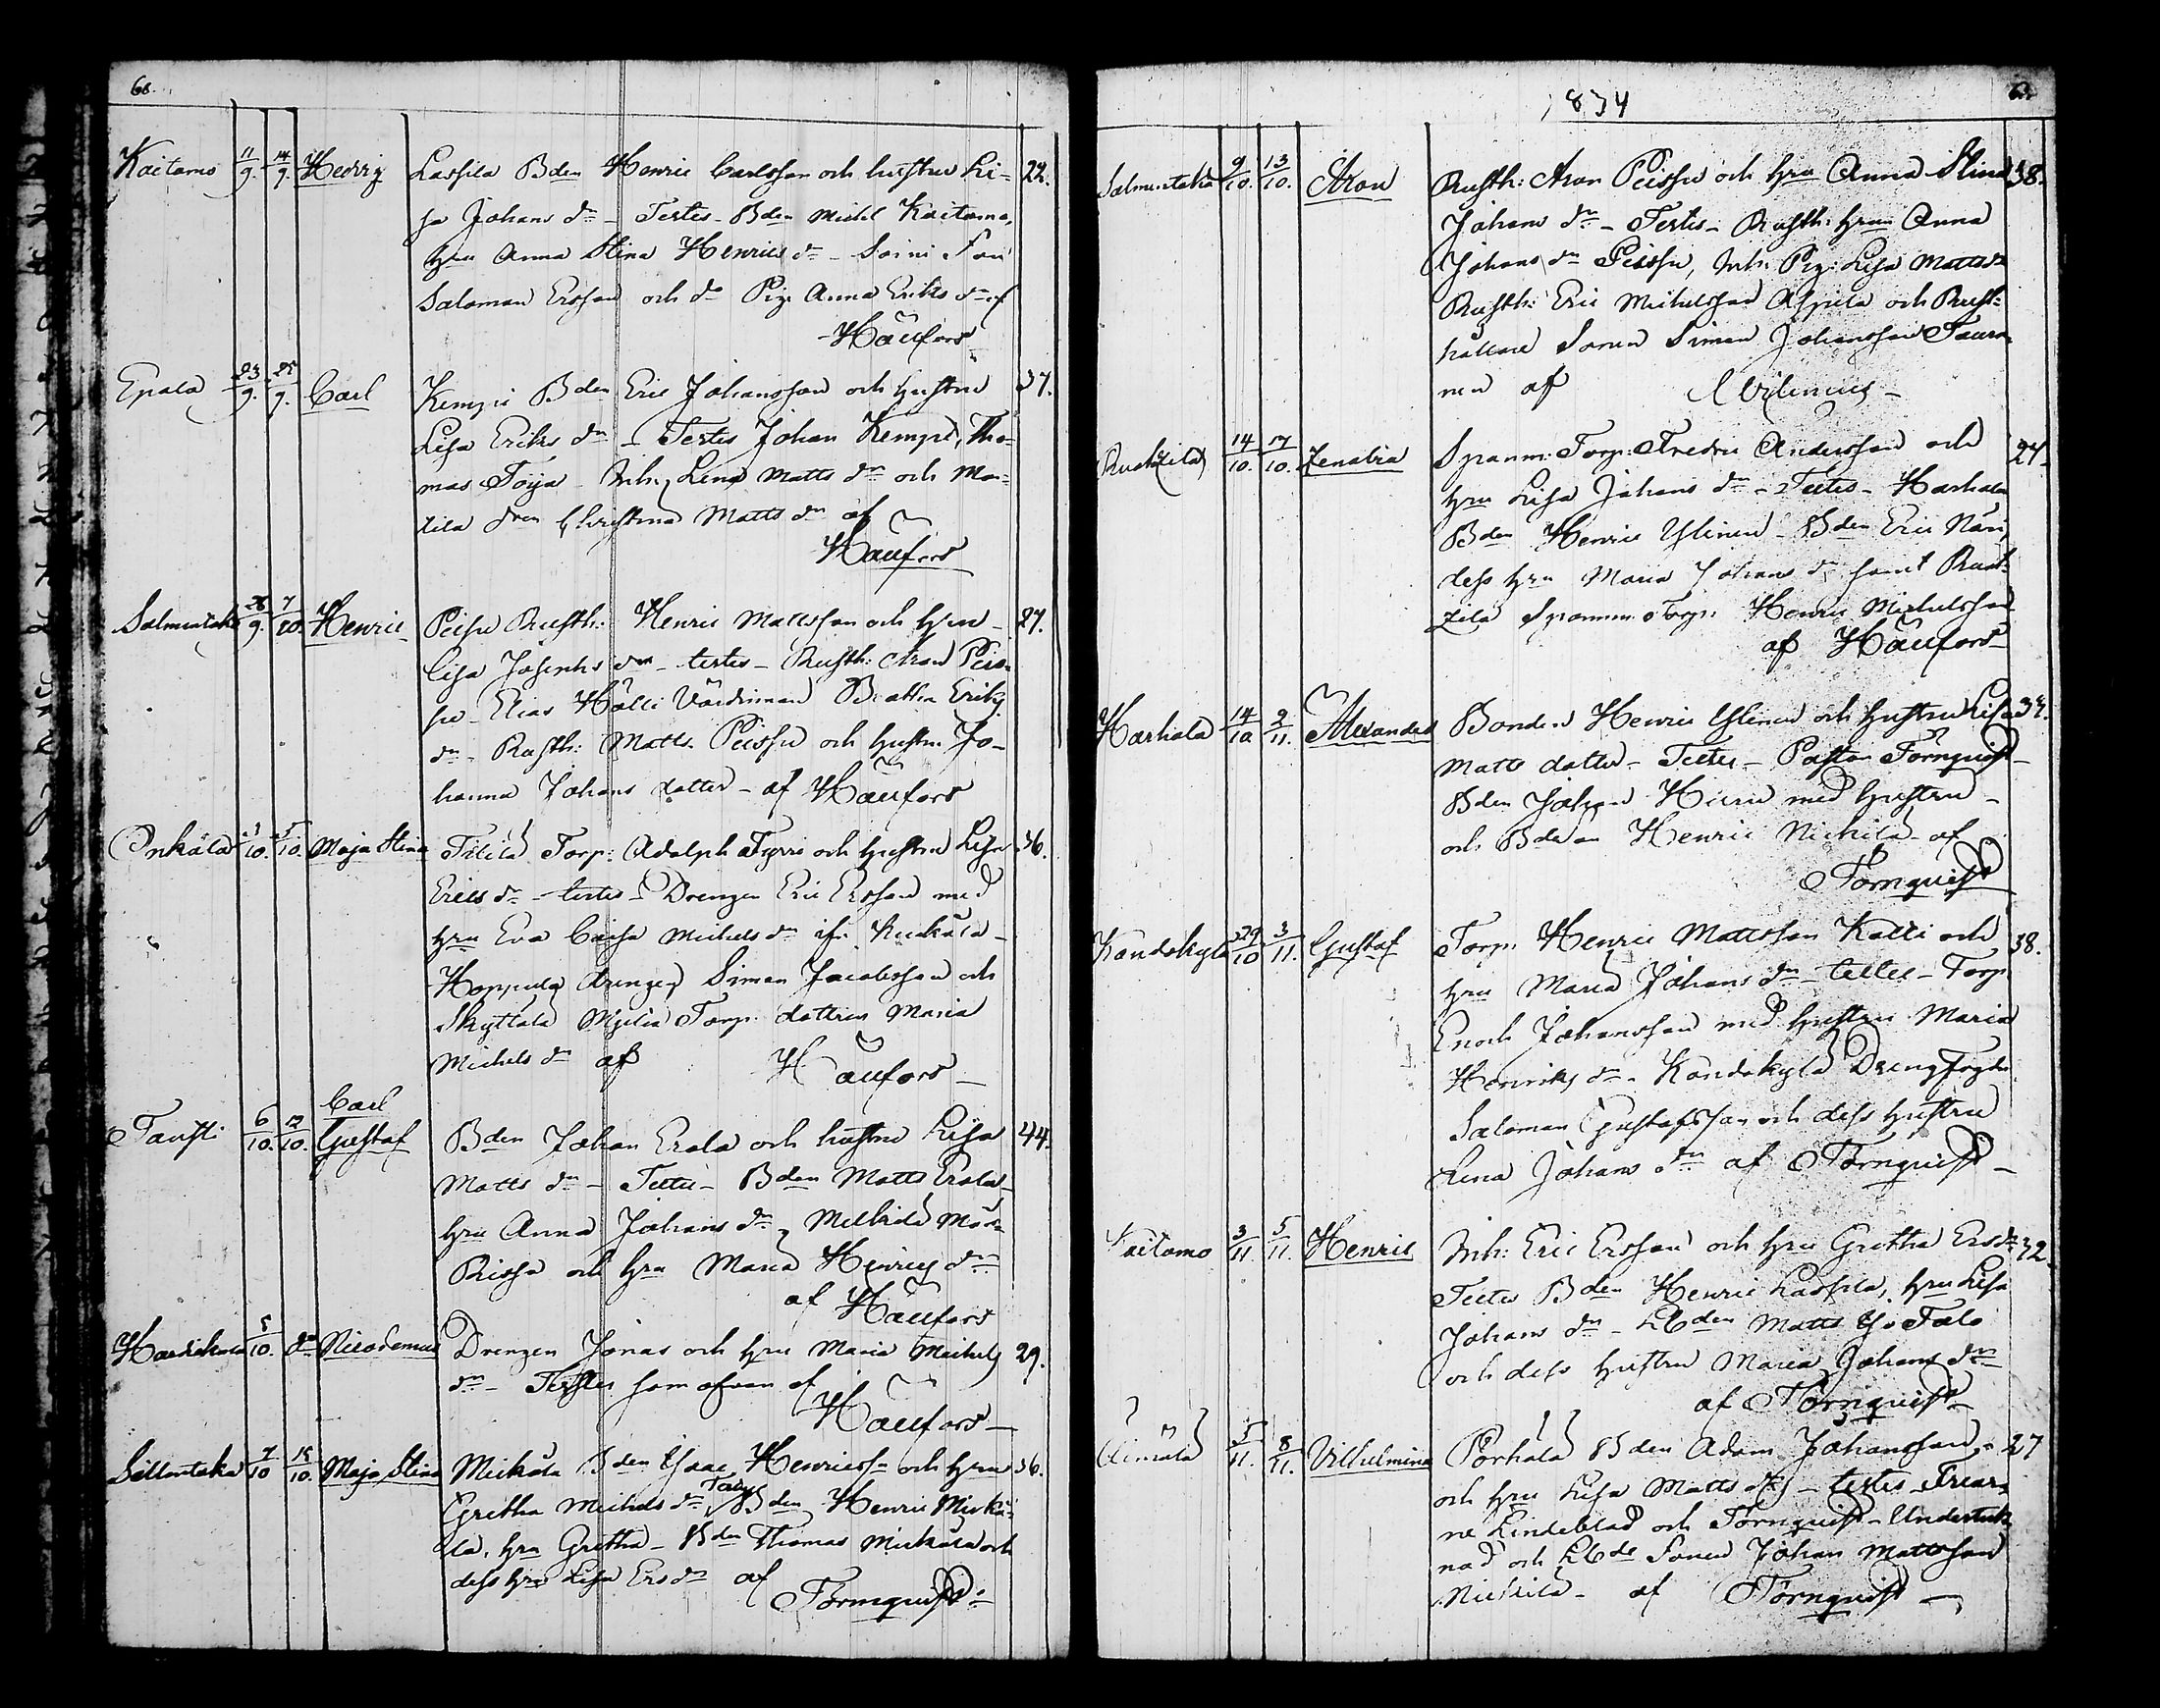 68.
Kaitamo 11/9. 14/9. Hedvig Lassila Bden Henric Carlsson och hustru Li- 22.
sa Johans dr - Testes - Bden Michl Kaitamo,
hru Anna Stina Henrics dr - Soini Son
Salomon Ersson och dr Pig. Anna Eriks dr af
Haufors
Epala 23/9. 25/9. Carl Kempi Bden Eric Johansson och hustru 37.
Lisa Eriks dr - Testes Johan Kempi, Tho-
mas Töija - Inh. Lena Matts dr och
tila Christina Matts dr af
Haufors
Salmentaka 28/9. 7/10. Henric Peissu Rusth: Henric Mattsson och hru 27.
Lisa Josephs dr - testes - Rusth: Aron Peis-
su - Elias Hälli Beatha Eriks
dr - Rusth: Matts Peissu och hustru Jo-
hanna Johans dotter - af Haufors
Onkala /10. 5/10. Maja Stina Tilila Torp: Adolph Tyrri och hustru Lisa 36.
Erics dr - testes - Drengen Eric Ersson med
hru Eva Caisa Michels dr ifr.
Hoppula drengen Simon Jacobsson och
Skyttälä Torp: dottren Maria
Michels dr af Haufors
Tausti 6/10. 12/10. Carl
Gustaf Bden Johan Erola och hustru Lisa 44.
Matts dr - Testes - Bden Matts Erola -
hru Anna Johans dr,
och hru Maria Henrics dr
af Haufors
5/10. do Nicodemus Drengen Jonas och hru Maria Michels 29.
dr - Testes som ofvan af
Haufors
Sillantaka 7/10 15/10. Maja Stina Mickola Bden Isaac Henricss. och hru 36.
Gretha Michels dr Testes Bden Henric Micko-
la, hru Gretha - Bden Thomas Mickola och
dess hru Lisa Ers dr af
Törnquist
1834
Salmentaka 9/10. 13/10. Aron Rusth: Aron Peissu och hru Anna Stina 38.
Johans dr - Testes - Rusth: hrun Anna
Johans dr Peissu, Inh. Pig: Lisa Matts dr
Rusth: Eric Michelsson Ahpila och Rust-
hållare Sonen Simon Johansson
nen af
14/10. 17/10. Zenobia Spanm: Torp: Fredric Andersson och 24.
hru Lisa Johans dr - Testes - Harhala
Bden Henric Ylinen - Bden Eric
dess hru Maria Johans dr samt
Spanm: Torp: Henric Michelsson
af Haufors
Harhala 14/10 2/11. Alexander Bonden Henric Ylinen och hustru Lisa 34.
Matts dotter - Testes - Pastor Törnquist -
Bden Johan med hustru -
och Bden Henric Nickila af
Törnquist
Kandakylä 29/10 3/11. Gustaf Torp: Henric Mattsson Kalli och 38.
hru Maria Johans dr - testes - Torp
Enoch Johansson med hustru Maria
Henriks dr - Kandakylä Drengfogde
Salomon Gustafsson och dess hustru
Lena Johans dr af Törnquist -
Kaitamo 3/11. 5/11. Henric Inh: Eric Ersson och hru Gretha Ers dr 32.
Testes Bden Henric Lassila, hru Lisa
Johans dr - Lbden Matts Yli Talo
och dess hustru Maria Johans dr
af Törnquist
Äimälä 5/11. 8/11. Vilhelmina Pörhölä Bden Adam Johansson 27
och hru Lisa Matts dr - testes -
ne Lindeblad och Törnquist - Underteck-
nad och Lbde Sonen Johan Mattsson
Nickilä - af Törnquist -